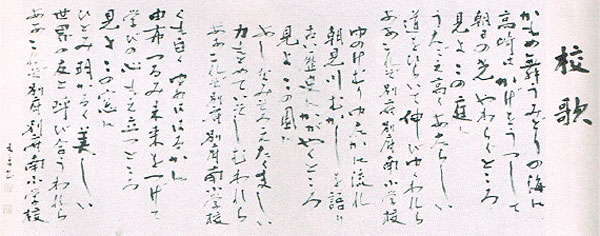 校歌
かもめ舞うみどりの海に
高崎はかげをうつして
朝日の光やわらぐところ
見よこの庭に
うたごえ高くあたらしい
道をひらいて伸びゆくわれら
ああこれぞ別府別府南小学校
ゆのけむりゆたかに流れ
朝見川むかしを語り
古い歴史にかがやくところ
見よこの園に
よしなみそろえたくましい
力をこめていそしむわれら
ああこれぞ別府別府南小学校
くも白くゆめははるかに
由布つるみ未来をつげて
学びの心もえ立つところ
見よこの窓に
ひとみ明かるく美しい
世界の友と呼び合うわれら
ああこれぞ別府別府南小学校